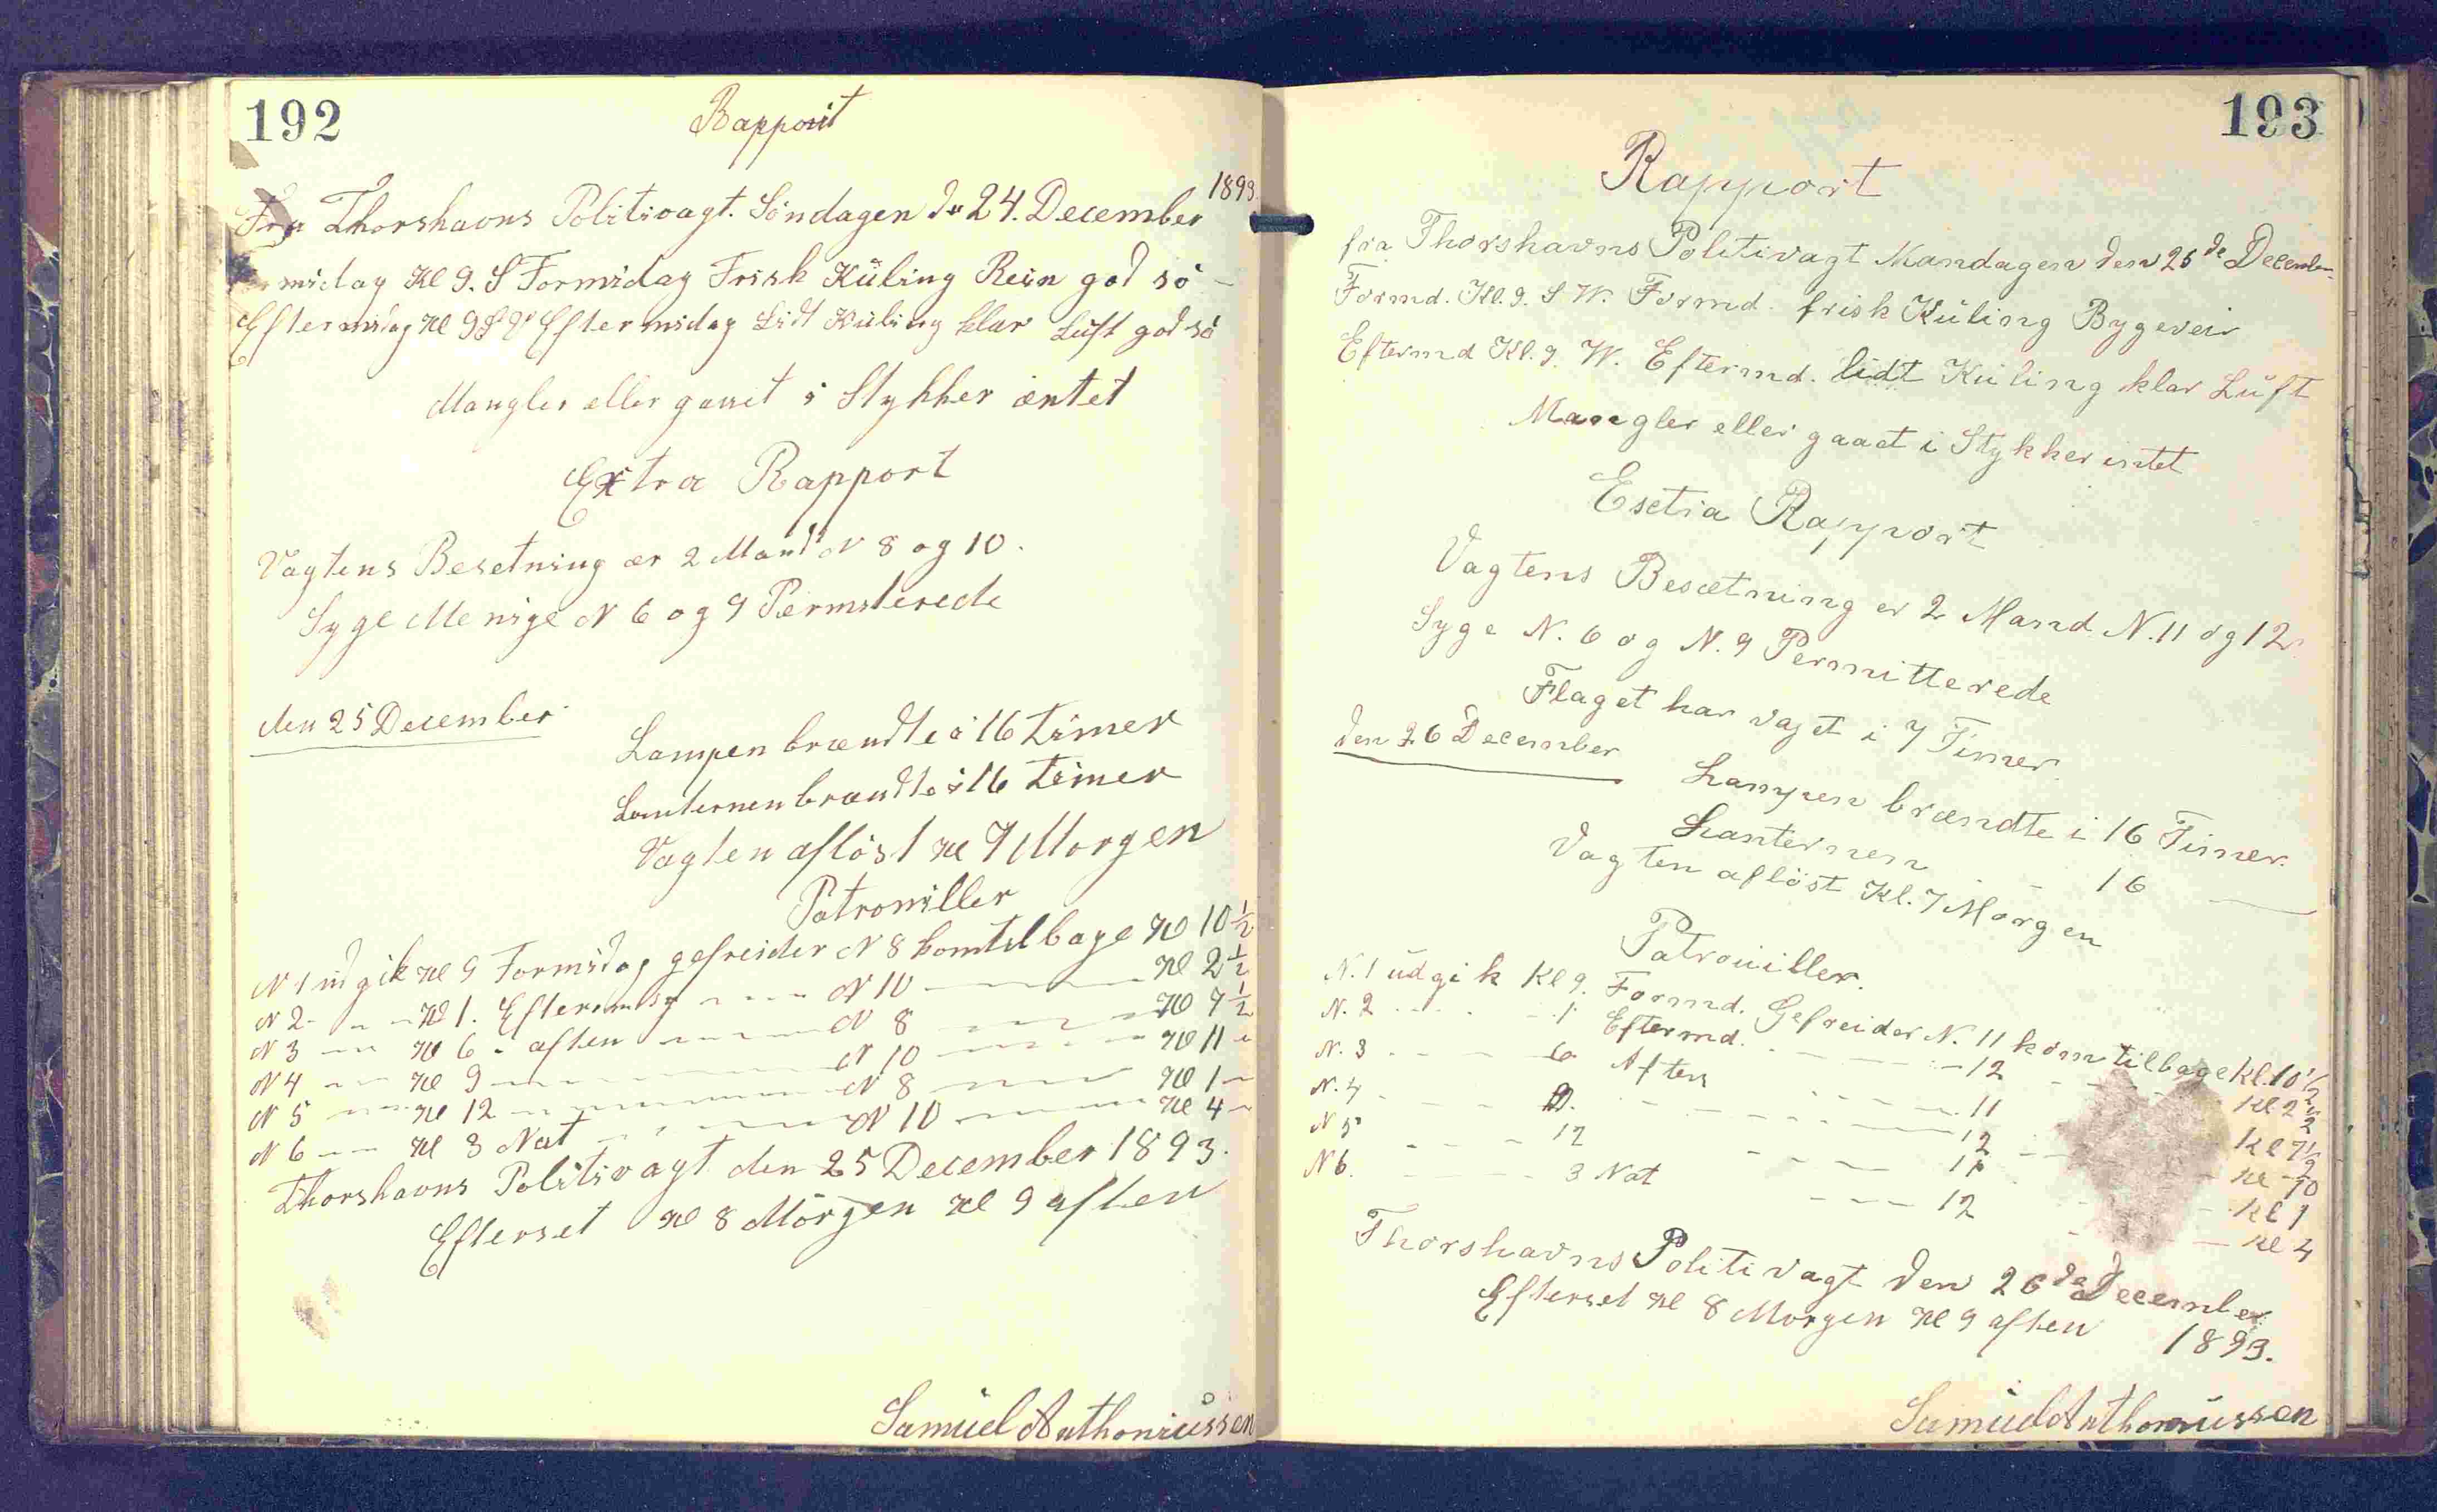 192
Rapport
1893
Fra Thorshavns Politivagt. Söndagen d. 24. December
midag Kl 9. S Formidag Frisk Küling Rein god sö
Eftermidag Kl 9 S V Eftermidag Lidt Küling klar Luft god sö
Mangler eller gaaet i Stykker æntet
Extra Rapport
Vagtens Besetning ær 2 Mand N 8 og 10.
Syge Menige N 6 og 9 Pærmiterede
den 25 December
Lampen brændte i 16 Timer
Lanternen brændte i 16 Timer
Vagten aflöst Kl 7 Morgen
Patroniller
N 1 udgik Kl 9 Formidag gefreider N 8 komtilbage Kl 10 ½
N 2 - - - Kl 1. Eftermidag - - - N 10 - - - Kl 2 ½
N 3 - - Kl 6 - aften - - - N 8 - - - Kl 7 ½
N 4 - - Kl 9 - - - N 10 - - - Kl 11 -
N 5 - - - Kl 12 - - - N 8 - - - Kl 1 -
N 6 - - Kl 3 Nat - - - N 10 - - - Kl 4 -
Thorshavns Politivagt den 25 December 1893.
Efterset Kl 8 Morgen Kl 9 aften
Samuel Anthoniussen
193
Rapport
fra Thorshavns Politivagt Mandagen den 25de December
Formd. Kl. 9. S W. Formd. frisk Küling Bygeveir
Eftermd Kl. 9. W. Eftermd. lidt Küling klar Luft
Mangler eller gaaet i Stykker intet
Esctia Rapport
Vagtens Besætning er 2 Mand N. 11 og 12
Syge N. 6 og N. 9 Permitterede
Flaget har vajet i 7 Timer.
den 26 December
Lampen brændte i 16 Timer.
Lanternen - 16 —
Vagten aflöst Kl. 7 Morgen
Patrouiller.
N. 1 udgik Kl 9. Formd. Gefreider N. 11 kom tilbage Kl. 10 ½
N. 2 - - - 1 Eftermd. - - - 12 - - - Kl 2 ½
N. 3 - - - 6 Aften - - - 11 - - - Kl 7 ½
N. 4 - - - 9. - - - 12 - - - Kl 10
N 5 - - - 12 - - - 11 - - - Kl 1
N 6. - - - 3 Nat - - - 12 - - - Kl 4
Thorshavns Politivagt den 26de December
1893.
Efterset Kl 8 Morgen Kl 9 aften
Samuel Anthoniussen